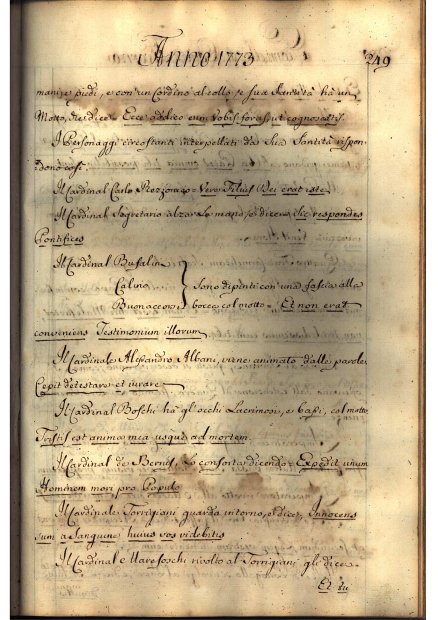 Anno 1773
249
mani, e piedi, e con un Cordino al collo, e sua Santità hà un
Motto, che dice Ecce adduco eum Vobis foras, ut cognoscatis.
I Personaggi circostanti interpellati da Sua Santità rispon-
dono così
Il Cardinal Carlo Rezzonico Vere Filius Dei erat iste
Il Cardinal Segretario alza le mani, e dice Sic respondes
Pontifici
Il Cardinal Bufalini
Calino
Buonaccorsi
Sono dipinti con una fascia alla
bocca col motto Et non erat
conveniens Testimonium illorum
Il Cardinale Alessandro Albani, viene animato dalle parole,
Cepit detestare et iurare
Il Cardinal Boschi hà gl'occhi Lacrimosi, e bassi, col motto
Tristis est anima mea usque ad mortem
Il Cardinal de Bernis, Lo conforta dicendo Expedit unum
Hominem mori pro Populo
Il Cardinale Torrigiani guarda intorno, e dice, Innocens
sum a Sanguine huius vos videbitis
Il Cardinal Marefoschi rivolto al Torrigiani gli dice
Et tu